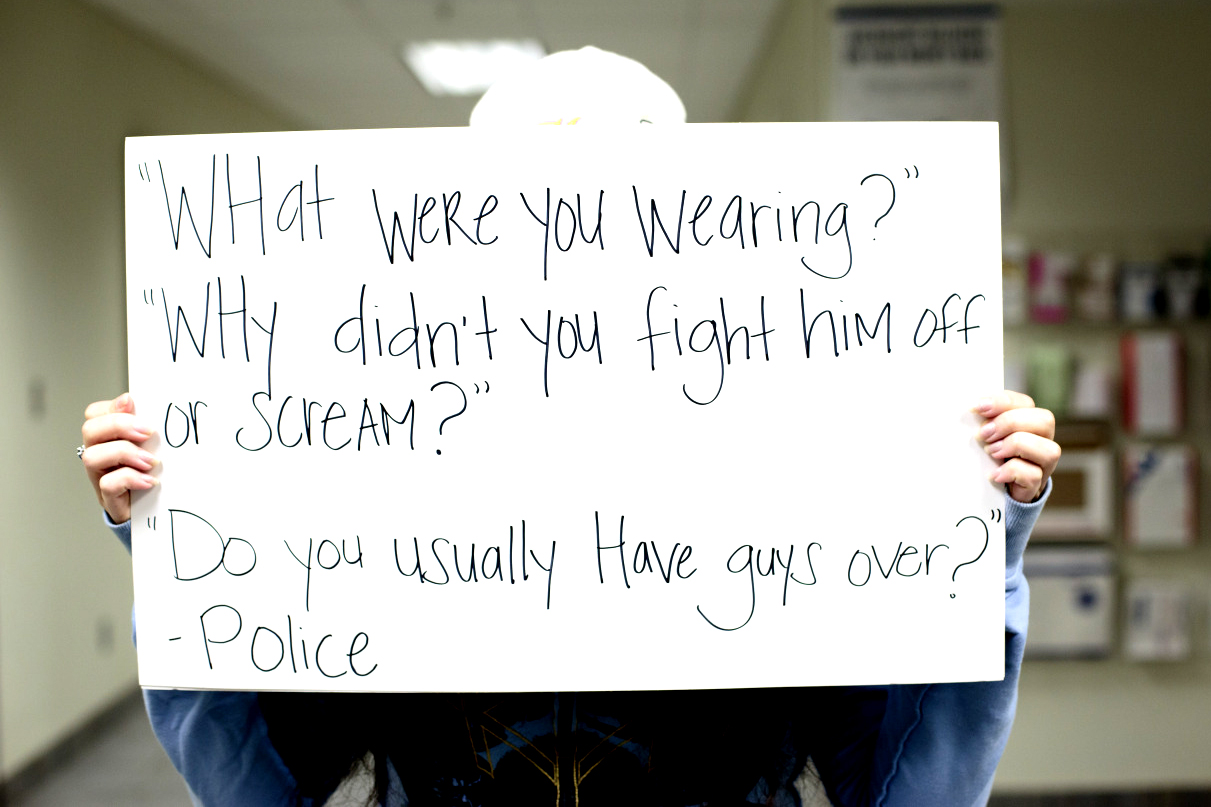 "WHat WeRe you Wearing?"
"WHy didn't you fight hiM off
or ScReAM?"
"Do you usually Have guys over?"
- Police